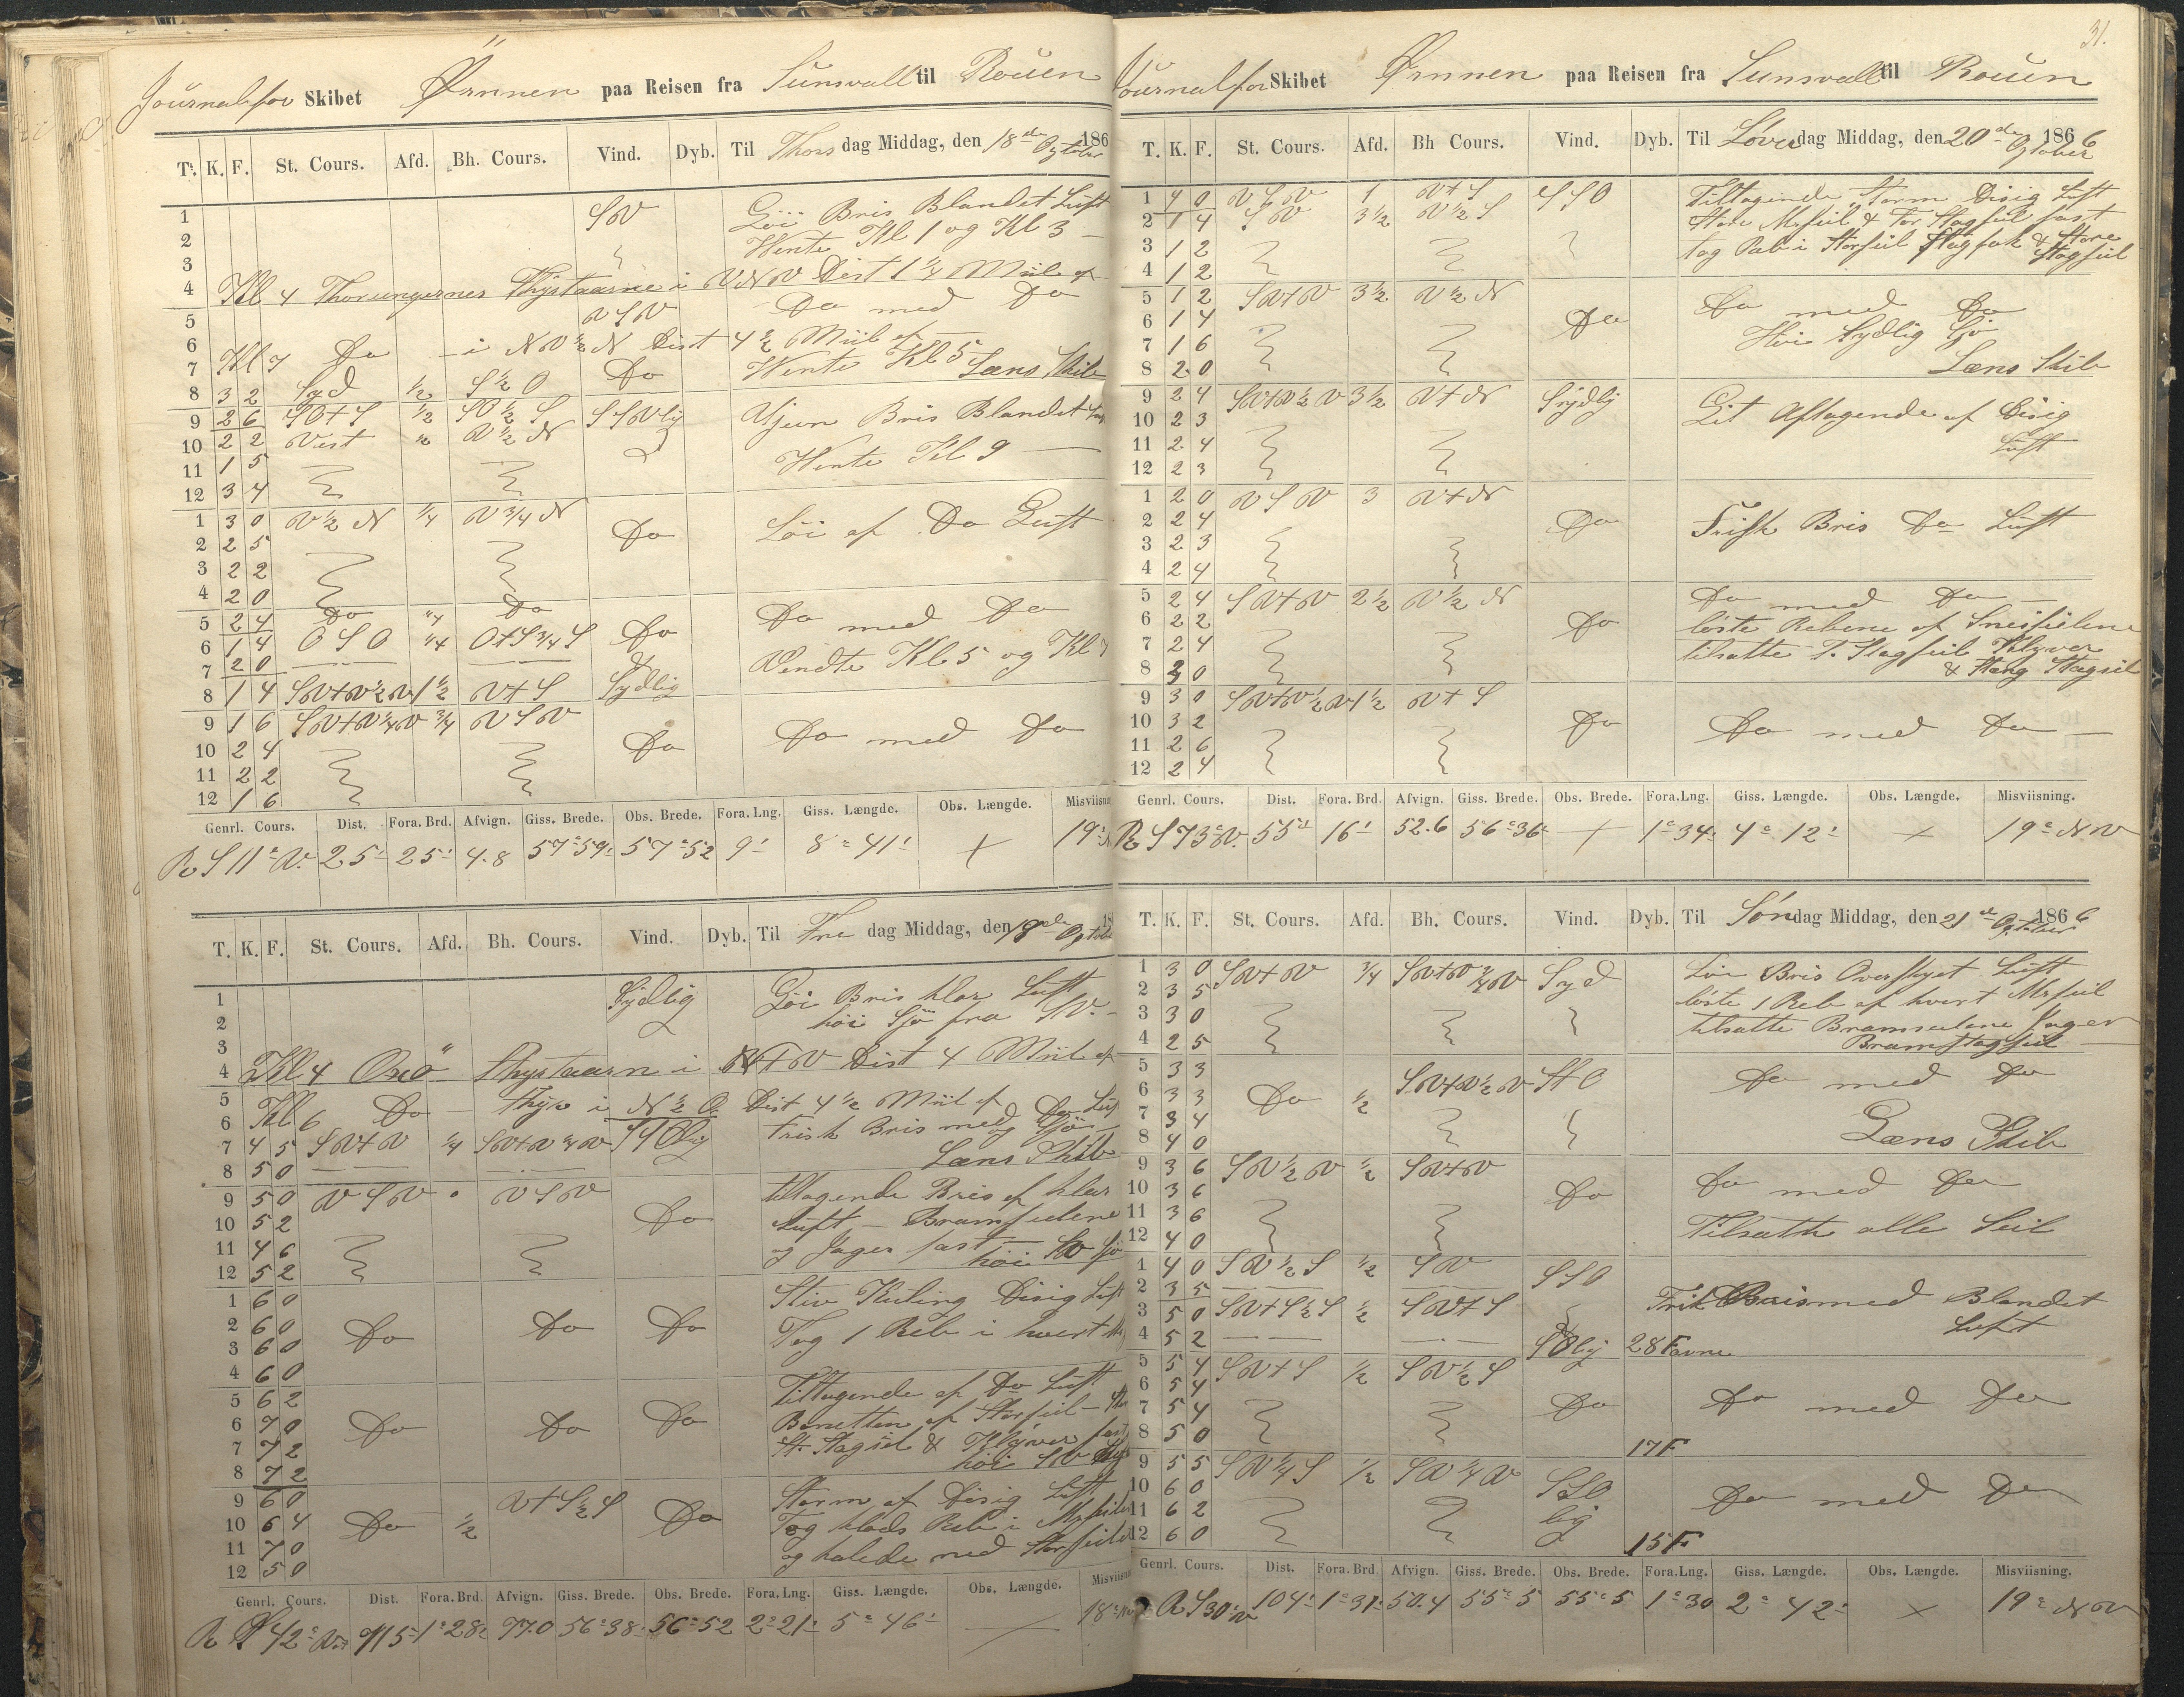 Journal for Skibet Ørnnen paa Reisen fra Sunsvall til Rouen
T. K. F. St. Cours. Afd. Bh. Cours. Vind. Dyb. Til Thorsdag Middag, den 18de Ogtober 186
1 SV Løi Bris Blandet Luft
2 Vente Kl 1 og Kl 3 —
3
4 Kl 4 Thorungernes Fhystaarne i VNV Dist 1 1/4 Miil af
5 VSV Do med Do
6
7 Kl 7 Do — i NV 1/2 N Dist 4 1/2 Miil af
Vente Kl 5 Læns Skib
8 3 2 Syd 1/2 S 1/2 O Do
9 2 6 SO+S 1/2 SO 1/2 S SSVlig Ujevn Bris Blandet Luft
10 2 2 Vest " V 1/2 N
11 1 5 Vente Kl 9 —
12 3 4
1 3 0 V 1/2 N 1/4 V 3/4 N Do Løi af Do Luft
2 2 5
3 2 2
4 2 0
5 2 4 Do 1/4 Do Do med Do
6 1 4 O S O 1/4 O+S 3/4 S Do
7 2 0 Vendte Kl 5 og Kl 7
8 1 4 SV+V 1/2 V 1 1/2 V+S Sydlig
9 1 6 SV+V 1/4 V 3/4 VSV
10 2 4 Do Do med Do
11 2 2
12 1 6
Genrl. Cours. Dist. Fora. Brd. Afvign. Giss. Brede. Obs. Brede. Fora. Lng. Giss. Længde. Obs. Længde. Misviisnin
R S 11° V. 25' 25' 4.8 57°59' 57°52 9' 8°41' + 19°
T. K. F. St. Cours. Afd. Bh. Cours. Vind. Dyb. Til Fredag Middag, den 19de Ogtober
1 Sydlig Løi Bris klar Luft
2 høi Sjö fra SV. —
3
4 Kl 4 Oxö Fhystaarn i N+V Dist 4 Miil af
5
6 Kl 6 Do — Fhyr i N 1/2 O Dist 4 1/2 Miil af
7 4 5 SV+V 1/4 SV+V 1/4 V SSOlig Frisk Bris med Do Luft og Sjö
8 5 0 Læns Skib
9 5 0 VSV " VSV tiltagende Bris af klar
10 5 2 Do Luft — Bramseilene
11 4 6 og Jager fast — høi SV Sjö
12 5 2
1 6 0 Stiv Kuling Disig Luft
2 6 0 Do Do Do Tog 1 Reb i hvert
3 6 0
4 6 0
5 6 2 Tiltagende af Do Luft
6 7 0 Do Do Do Bonetten af Storseil —
7 7 2 St. Stagseil & Klyver fast
8 7 2 høi SV Sjö
9 6 0 V+S 1/2 S Storm af Disig Luft
10 6 4 Do 1/2 Do Tog klods Reb i Mrseilene
11 7 0 og halede ned Storseilet
12 5 0
Genrl. Cours. Dist. Fora. Brd. Afvign. Giss. Brede. Obs. Brede. Fora. Lng. Giss. Længde. Obs. Længde. Misviisni
R S 42° V 115' 1°28' 77.0 56°38' 56°52 2°21' 5°46' — 18°
31.
Journal for Skibet Ørnnen paa Reisen fra Sunsvall til Rouen
T. K. F. St. Cours. Afd. Bh Cours. Vind. Dyb. Til Löverdag Middag, den 20de Ogtober 1866
1 4 0 VSV 1 V+S SSO Tiltagende Storm Disig Luft
2 1 4 SV 3 1/2 V 1/2 S Store Mrseil & For Stagseil fast
3 1 2 tog Reb i Storseil Stagfok & Store Stagseil
4 1 2
5 1 2 SV+V 3 1/2 V 1/2 N Do med Do
6 1 4 Do
7 1 6 Höi Sydlig Sjö
8 2 0 Læns Skib
9 2 4 SV+V 1/2 V 3 1/2 V+N Sydlig Lit Aftagende af Disig
10 2 3
11 2 4 Luft
12 2 3
1 2 0 VSV 3 V+N
2 2 4 Do Frisk Bris Do Luft
3 2 3
4 2 4
5 2 4 SV+V 2 1/2 V 1/2 N Do med Do —
6 2 2 Do löste Rebene af Sneiseilene
7 2 4 tilsatte F. Stagseil Klyver
8 3 0 & Stang Stagseil
9 3 0 SV+V 1/2 V 1 1/2 V+S
10 3 2 Do Do med Do —
11 2 6
12 2 4
Genrl. Cours. Dist. Fora. Brd. Afvign. Giss. Brede. Obs. Brede. Fora. Lng. Giss. Længde. Obs. Længde. Misviisning.
R S 73° V. 55' 16' 52.6 56°36' + 1°34' 4°12' + 19° NV
T. K. F. St. Cours. Afd. Bh. Cours. Vind. Dyb. Til Søndag Middag, den 21de Ogtober 1866
1 3 0 SV+V 3/4 SV+V 3/4 V Syd Löi Bris Overskyet Luft
2 3 5 löste 1 Reb af hvert Mrseil
3 3 0 tilsatte Bramseilene Jager
4 2 5 Bramstagseil —
5 3 3 SV+V 1/2 V S+O Do med Do
6 3 3 Do 1/2
7 3 4
8 4 0 Læns Skib
9 3 6 SV 1/2 V 1/2 SV+V
10 3 6 Do Do med Do
11 3 6 Tilsatte alle Seil
12 4 0
1 4 0 SV 1/2 S 1/2 SV SSO
2 3 5
3 5 0 SV+S 1/2 S 1/2 SV+S Frisk Bris med Blandet
4 5 2 SOlig 28 Favne Luft
5 5 4 SV+S 1/2 SV 1/2 S
6 5 4
7 5 4 Do Do med Do
8 5 0 17 F
9 5 5 SV 1/4 S 1/2 SV 1/4 V SSO
10 6 0 lig Do med Do
11 6 2
12 6 0 15 F
Genrl. Cours. Dist. Fora. Brd Afvign. Giss. Brede. Obs. Brede. Fora. Lng. Giss. Længde. Obs. Længde. Misviisning.
R S 30° V 104' 1°31' 50.4 55°5 55°5 1°30 2°42' + 19° NV